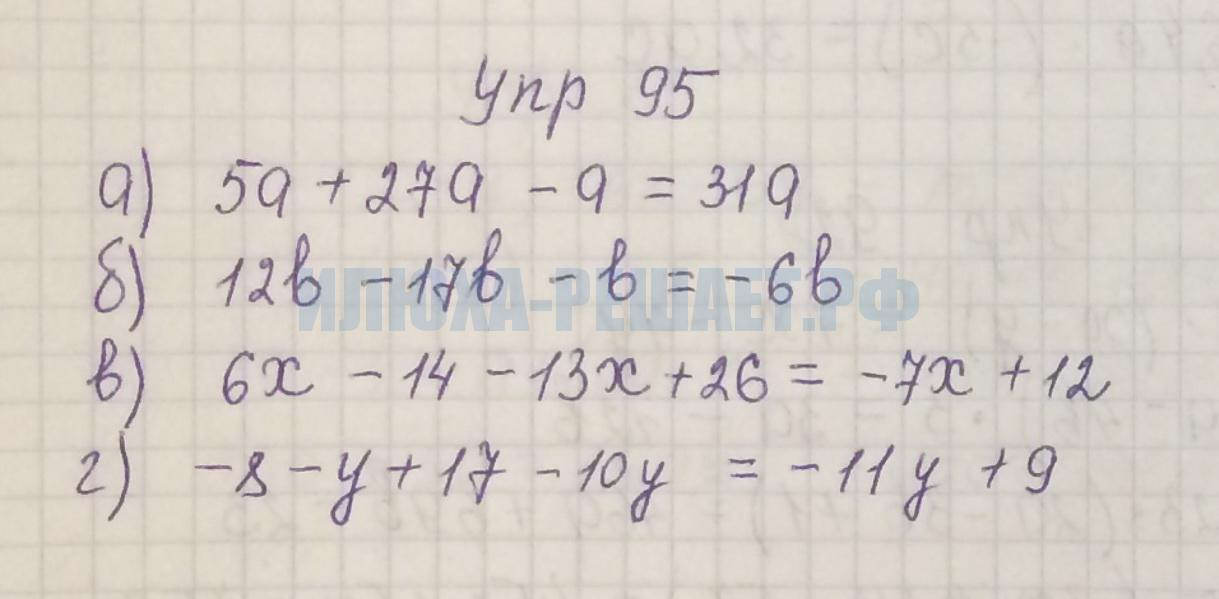 Упр 95
а) 5а + 27а - а = 31а
б) 12b - 17b - b = -6b
ИЛЮХА-РЕШАЕТ.РФ
в) 6x - 14 - 13x + 26 = -7x + 12
г) -8 - y + 17 - 10y = -11y + 9